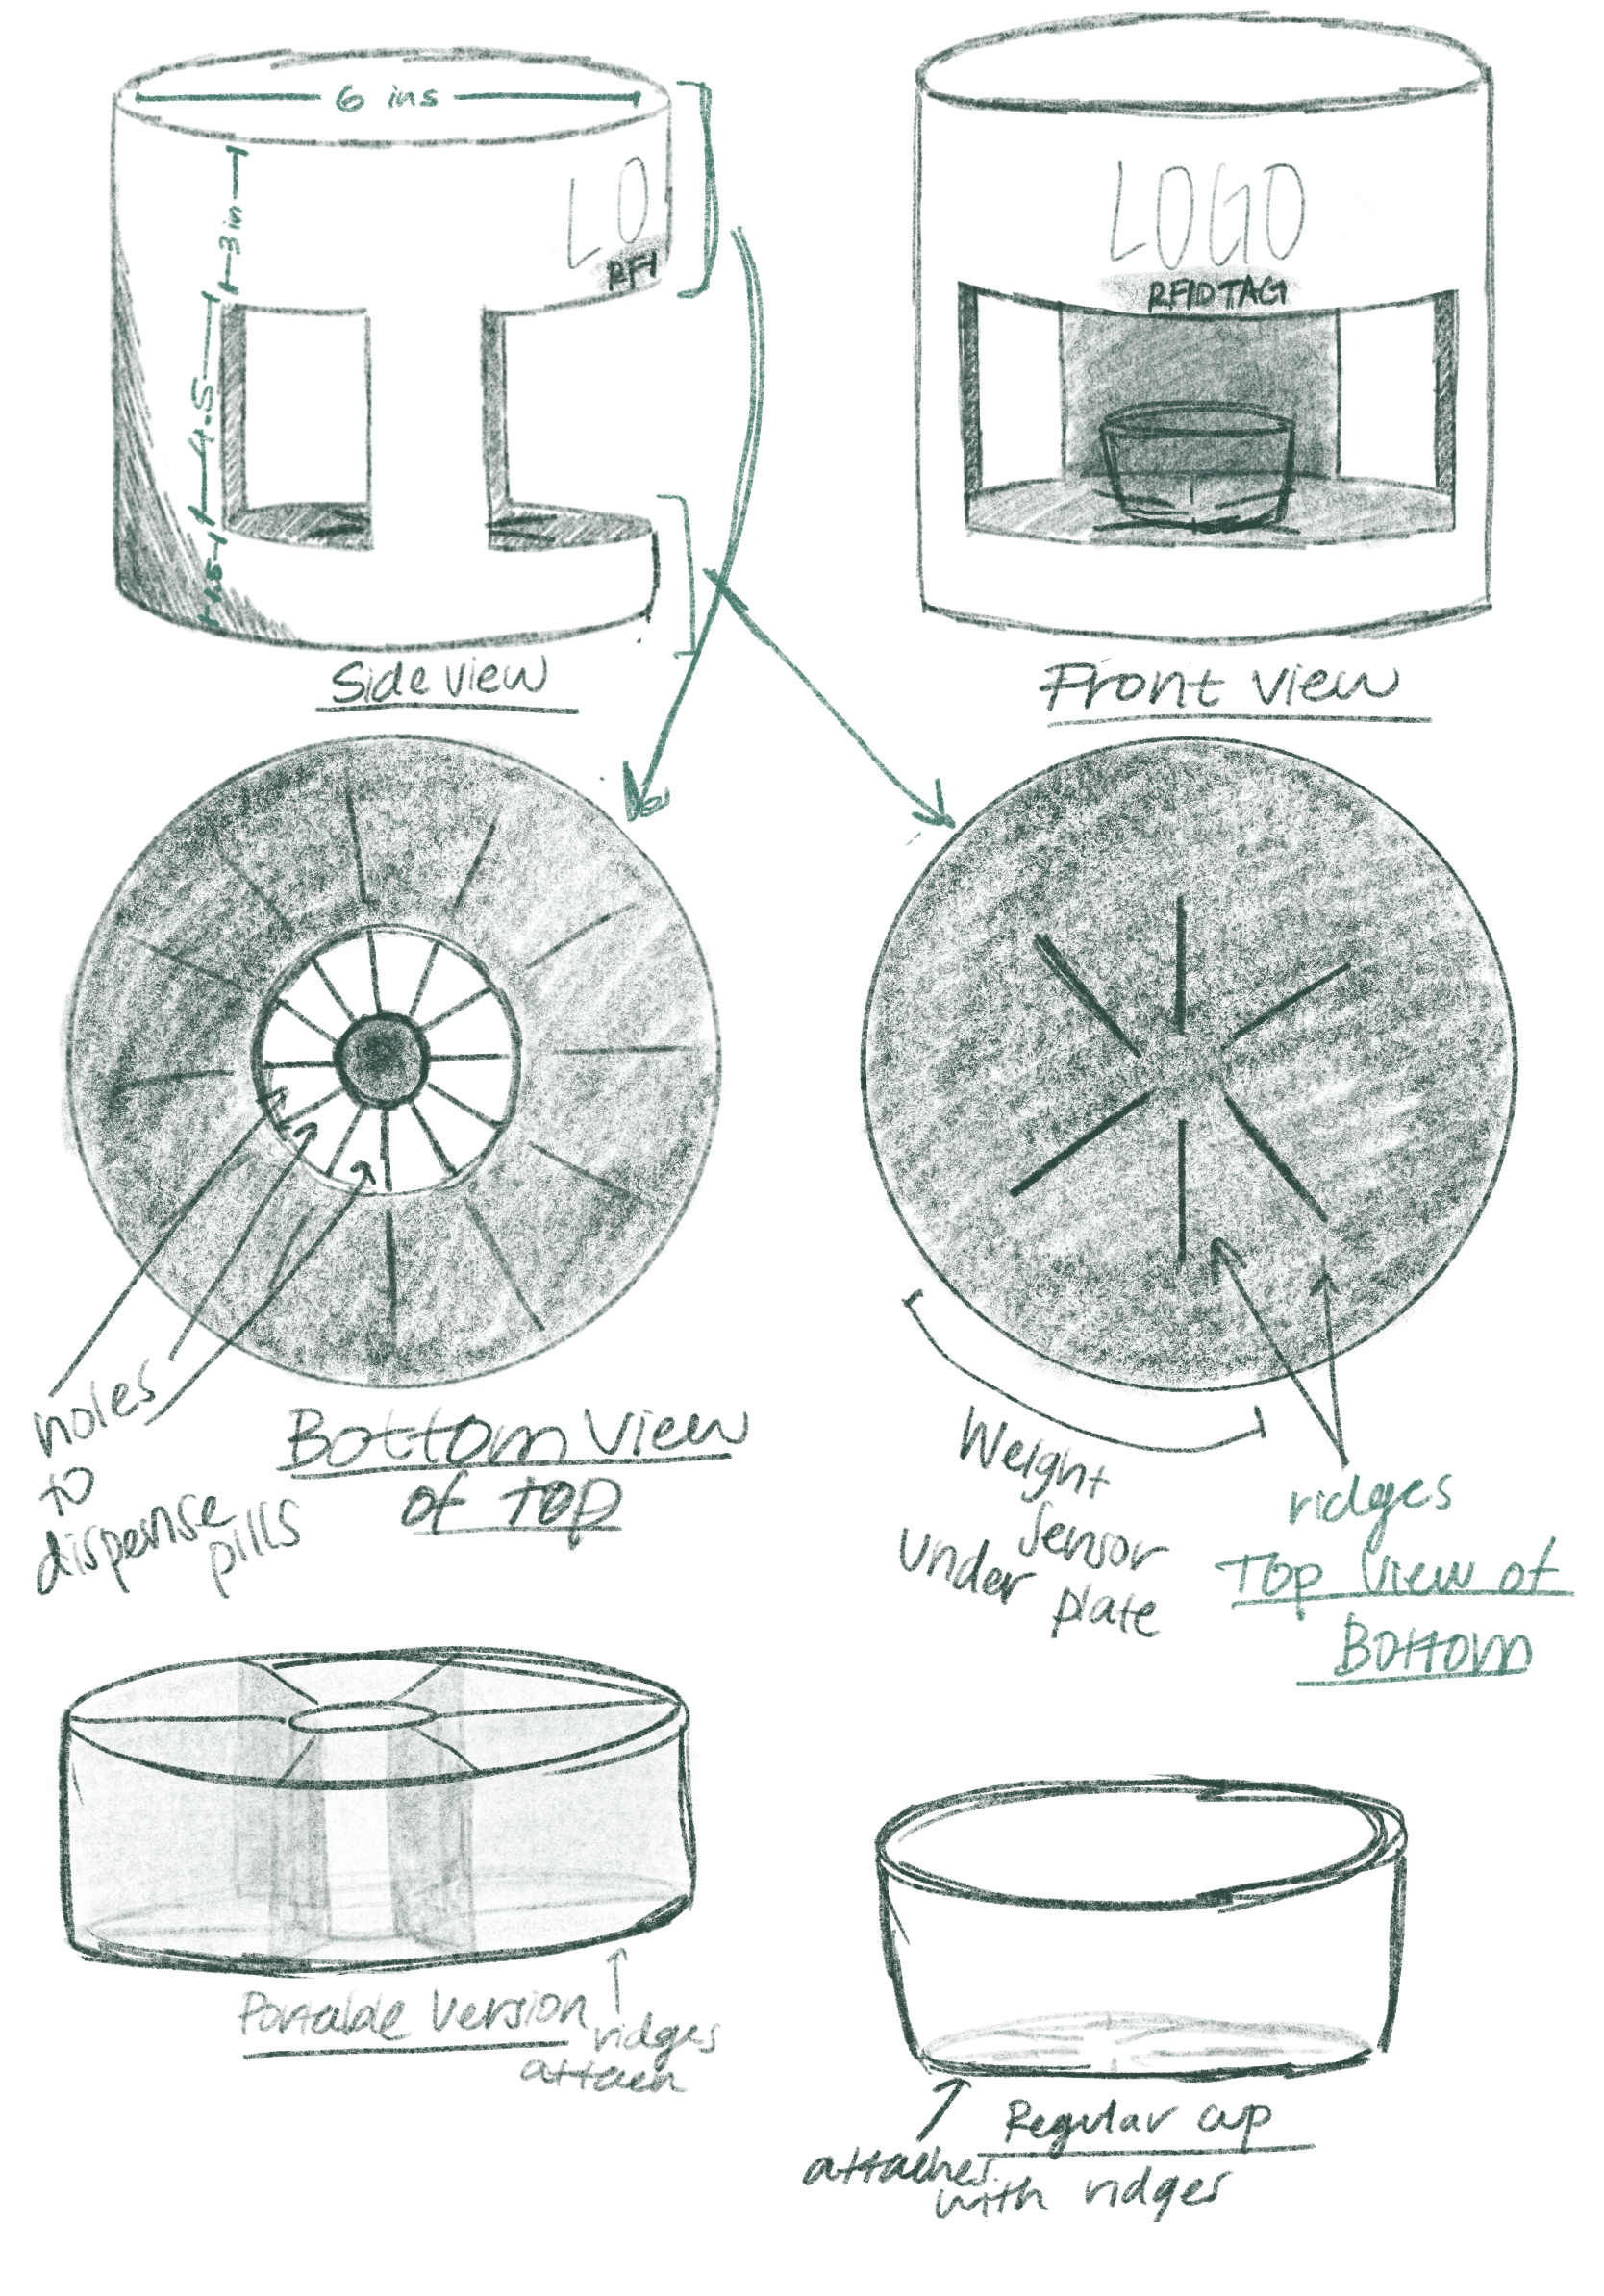 6 ins
3in
4.5
1.5
LO
RFI
Side view
LOGO
RFID TAG
Front view
holes
to
dispense
pills
Bottom view
of top
Weight
Sensor
under plate
ridges
Top view of
Bottom
Portable Version
ridges
attach
Regular cup
attaches
with ridges